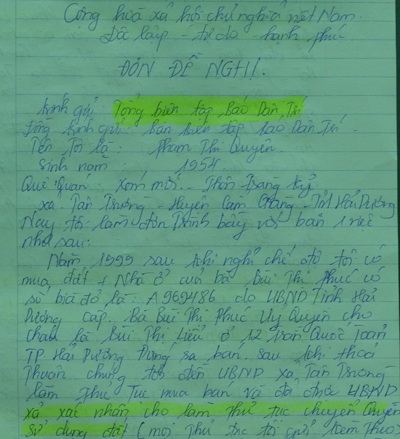 Cộng hoà xã hội chủ nghĩa việt Nam
Độc lập - tự do - hạnh phúc
ĐƠN ĐỀ NGHỊ.
kính gửi Tổng biên tập Báo Dân Trí
Đồng kính gửi: ban biên tập báo Dân Trí.
Tên tôi là: Phạm Thị Quyên
Sinh năm: 1954
Quê quán: Xóm mới - Thôn Tràng kỹ
xã Tân Trường - Huyện Cẩm Giàng - Tỉnh Hải Dương
Nay tôi làm đơn trình bày với ban 1 việc
như sau:
Năm 1999 sau khi nghỉ chế độ tôi có
mua đất + Nhà ở của bà Bùi Thị Phúc có
số bìa đỏ là: A969486 do UBND Tỉnh Hải
Dương cấp. Bà Bùi Thị Phúc Uỷ Quyền cho
cháu là Bùi Thị Liễu ở 12 Trần Quốc Toản
TP Hải Dương Đứng ra bán. sau khi thoả
thuận chúng tôi đến UBND xã Tân Trường
Làm thủ Tục mua bán và đã được UBND
xã xác nhận cho làm thủ tục chuyển Quyền
sử dụng đất (mọi thủ tục tôi gửi kèm theo)